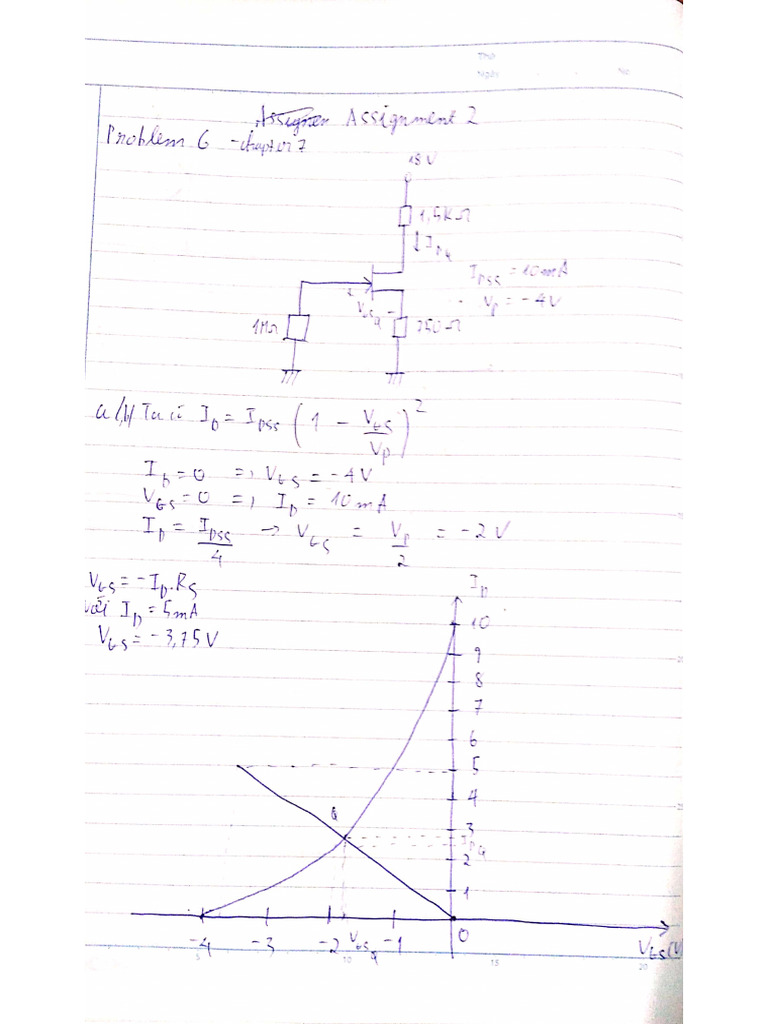 Thứ
Ngày . . No
Assignment 2
Problem 6 - chapter 7
18V
1,5KΩ
↓ I_DQ
I_DSS = 10mA
V_P = -4V
V_GSQ
1MΩ
750Ω
a/b/ Ta có I_D = I_DSS (1 - V_GS/V_P)^2
I_D = 0 => V_GS = -4V
V_GS = 0 => I_D = 10mA
I_D = I_DSS/4 → V_GS = V_P/2 = -2V
V_GS = -I_D.R_S
với I_D = 5mA
V_GS = -3,75V
I_D
10
9
8
7
6
5
4
Q
3
I_DQ
2
1
-4 -3 -2 V_GSQ -1 0
V_GS(V)
5 10 15 20